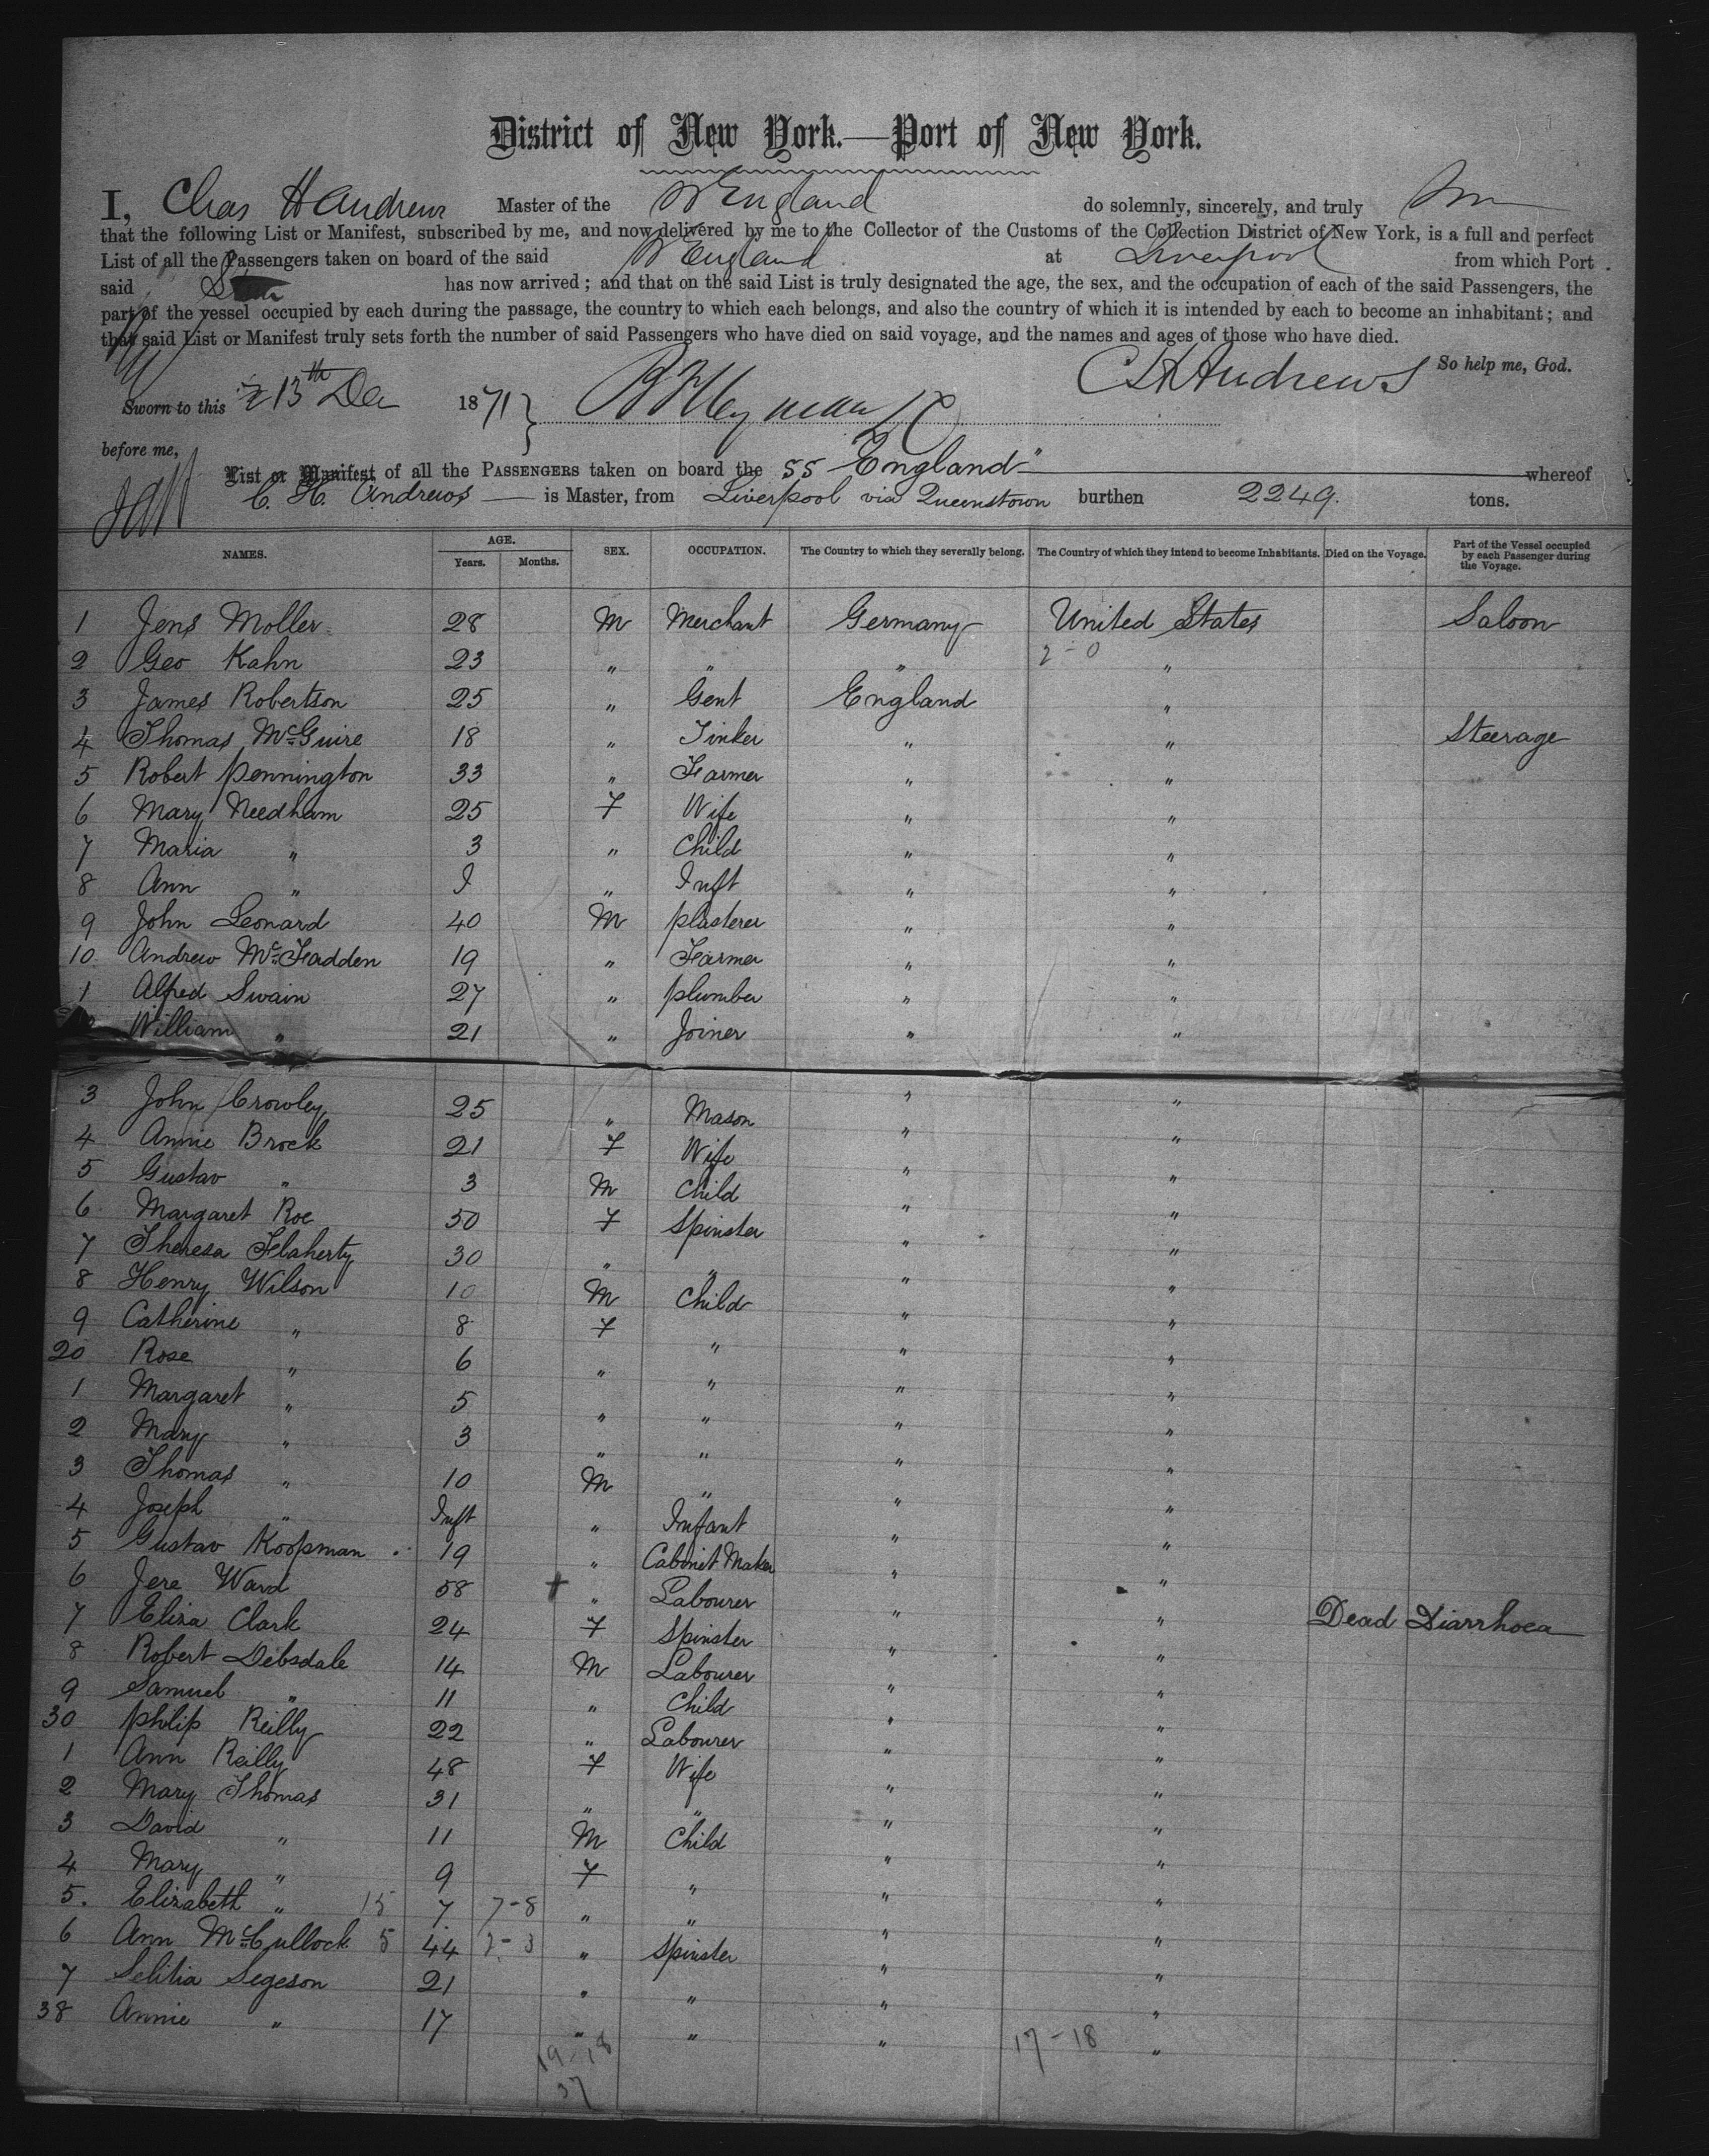 District of New York.—Port of New York.
I, Chas H Andrews Master of the SS England do solemnly, sincerely, and truly
that the following List or Manifest, subscribed by me, and now delivered by me to the Collector of the Customs of the Collection District of New York, is a full and perfect
List of all the Passengers taken on board of the said SS England at Liverpool from which Port
said has now arrived; and that on the said List is truly designated the age, the sex, and the occupation of each of the said Passengers, the
part of the vessel occupied by each during the passage, the country to which each belongs, and also the country of which it is intended by each to become an inhabitant; and
that said List or Manifest truly sets forth the number of said Passengers who have died on said voyage, and the names and ages of those who have died.
So help me, God.
C H Andrews
Sworn to this 13th Dec 1871
before me,
List or Manifest of all the PASSENGERS taken on board the SS England" whereof
C. H. Andrews is Master, from Liverpool via Queenstown burthen 2249. tons.
NAMES. AGE. Years. Months. SEX. OCCUPATION. The Country to which they severally belong. The Country of which they intend to become Inhabitants. Died on the Voyage. Part of the Vessel occupied by each Passenger during the Voyage.
1 Jens Moller 28 M Merchant Germany United States Saloon
2 Geo Kahn 23 " " " 2-0 "
3 James Robertson 25 " Gent England "
4 Thomas McGuire 18 " Tinker " " Steerage
5 Robert Pennington 33 " Farmer " "
6 Mary Needham 25 F Wife " "
7 Maria " 3 " Child " "
8 Ann " I " Inft " "
9 John Leonard 40 M plasterer " "
10 Andrew McFadden 19 " Farmer " "
1 Alfred Swain 27 " plumber " "
William " 21 " Joiner " "
3 John Crowley 25 " Mason " "
4 Annie Brock 21 F Wife " "
5 Gustav " 3 M Child " "
6 Margaret Roe 50 F Spinster " "
7 Theresa Flaherty 30 " " " "
8 Henry Wilson 10 M Child " "
9 Catherine " 8 F " " "
20 Rose " 6 " " " "
1 Margaret " 5 " " " "
2 Mary " 3 " " " "
3 Thomas " 10 M " " "
4 Joseph " Inft " Infant " "
5 Gustav Koopman 19 " Cabinet Maker " "
6 Jere Ward 58 + " Labourer " " Dead Diarrhoea
7 Eliza Clark 24 F Spinster " "
8 Robert Debsdale 14 M Labourer " "
9 Samuel " 11 " Child " "
30 philip Reilly 22 " Labourer " "
1 Ann Reilly 48 F Wife " "
2 Mary Thomas 31 " " " "
3 David " 11 M Child " "
4 Mary " 9 F " " "
5. Elizabeth " 15 7 7-8 " " " "
6 Ann McCullock 5 44 2-3 " Spinster " "
7 Selitia Segeson 21 " " " "
38 Annie " 17 " " " "
19-18 17-18
37